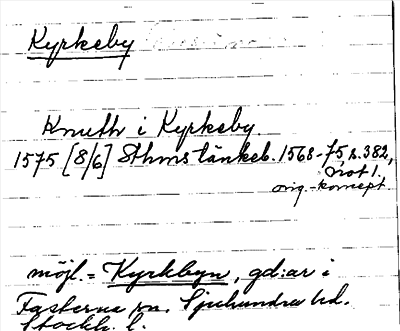 Kyrkeby
Knuth i Kyrkeby.
1575 [8/6] Sthms tänkeb. 1568-75, s. 382,
not 1.
orig.-koncept
möjl. = Kyrkbyn, gd:ar i
Fasterna sn. Sjuhundra hd.
Stockh. l.